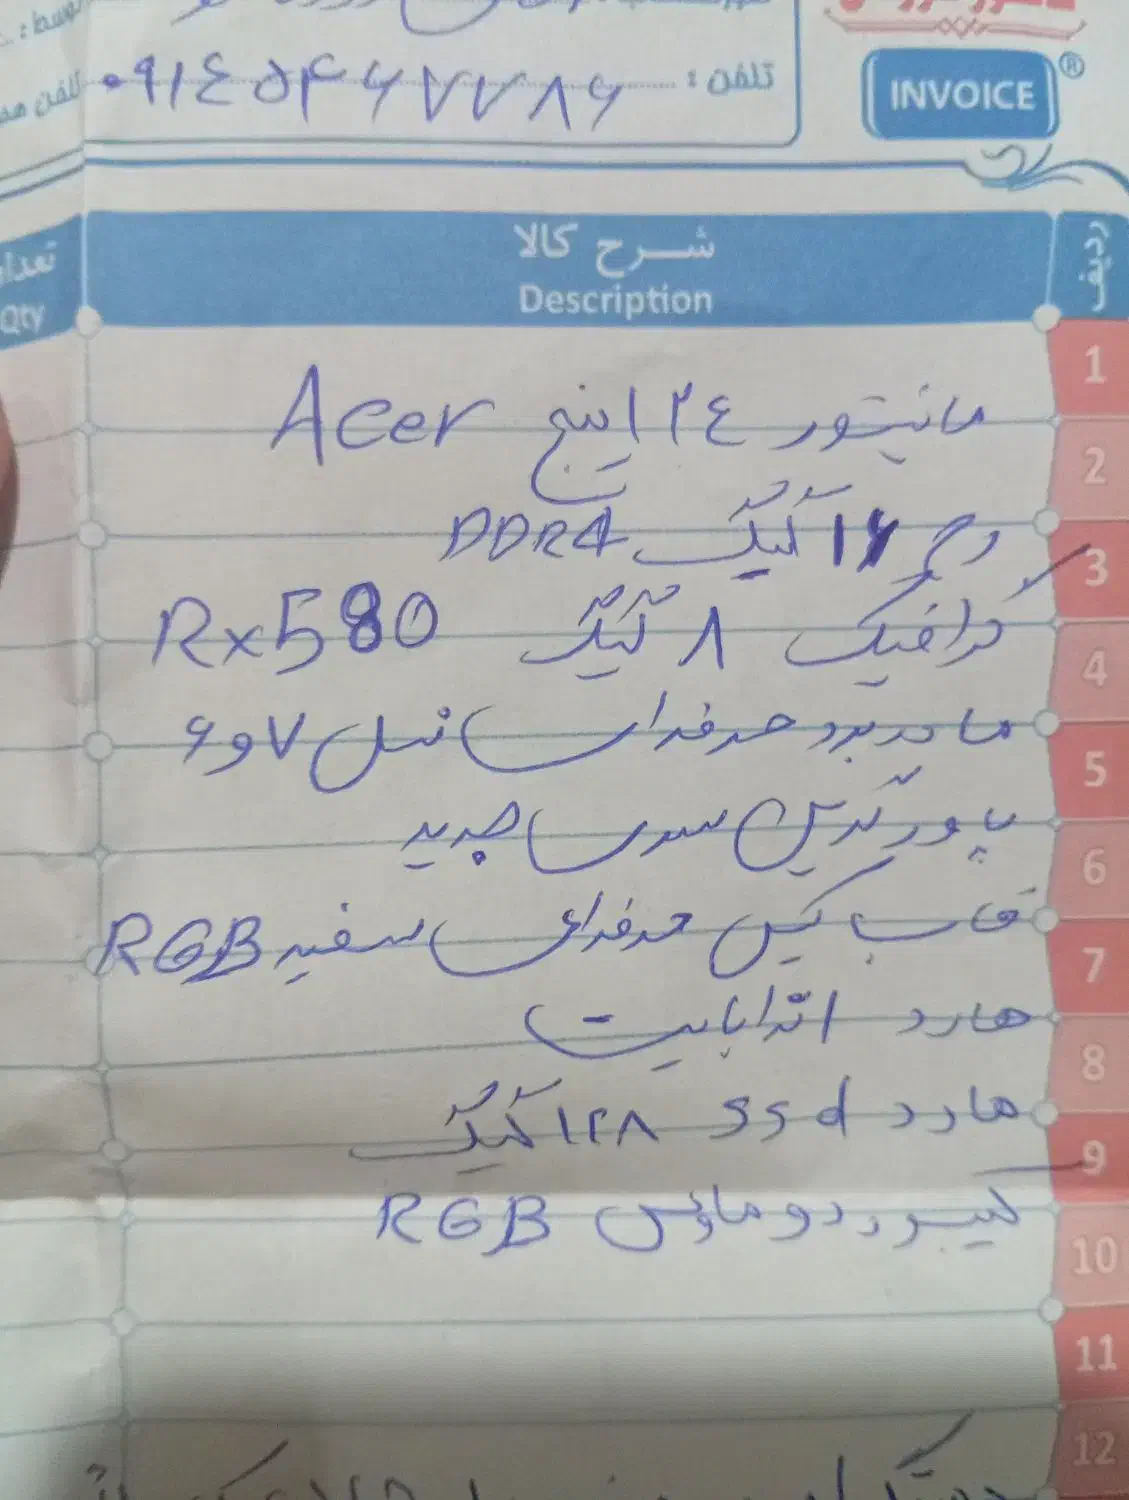 توسط :
تلفن : ۰۹۱۴۵۴۶۷۷۸۶
تلفن
INVOICE
ردیف
شرح کالا
Description
تعداد
Qty
1
مانیتور ۲۴ اینچ Acer
2
رم ۱۶ گیگ DDR4
3
گرافیک ۸ گیگ Rx580
4
مادربرد حرفه ای نسل ۷ و ۶
5
پاور گرین سری جدید
6
قاب کیس حرفه ای سفید RGB
7
هارد ۱ ترابایت
8
هارد ssd ۱۲۸ گیگ
9
کیبورد و ماوس RGB
10
11
12